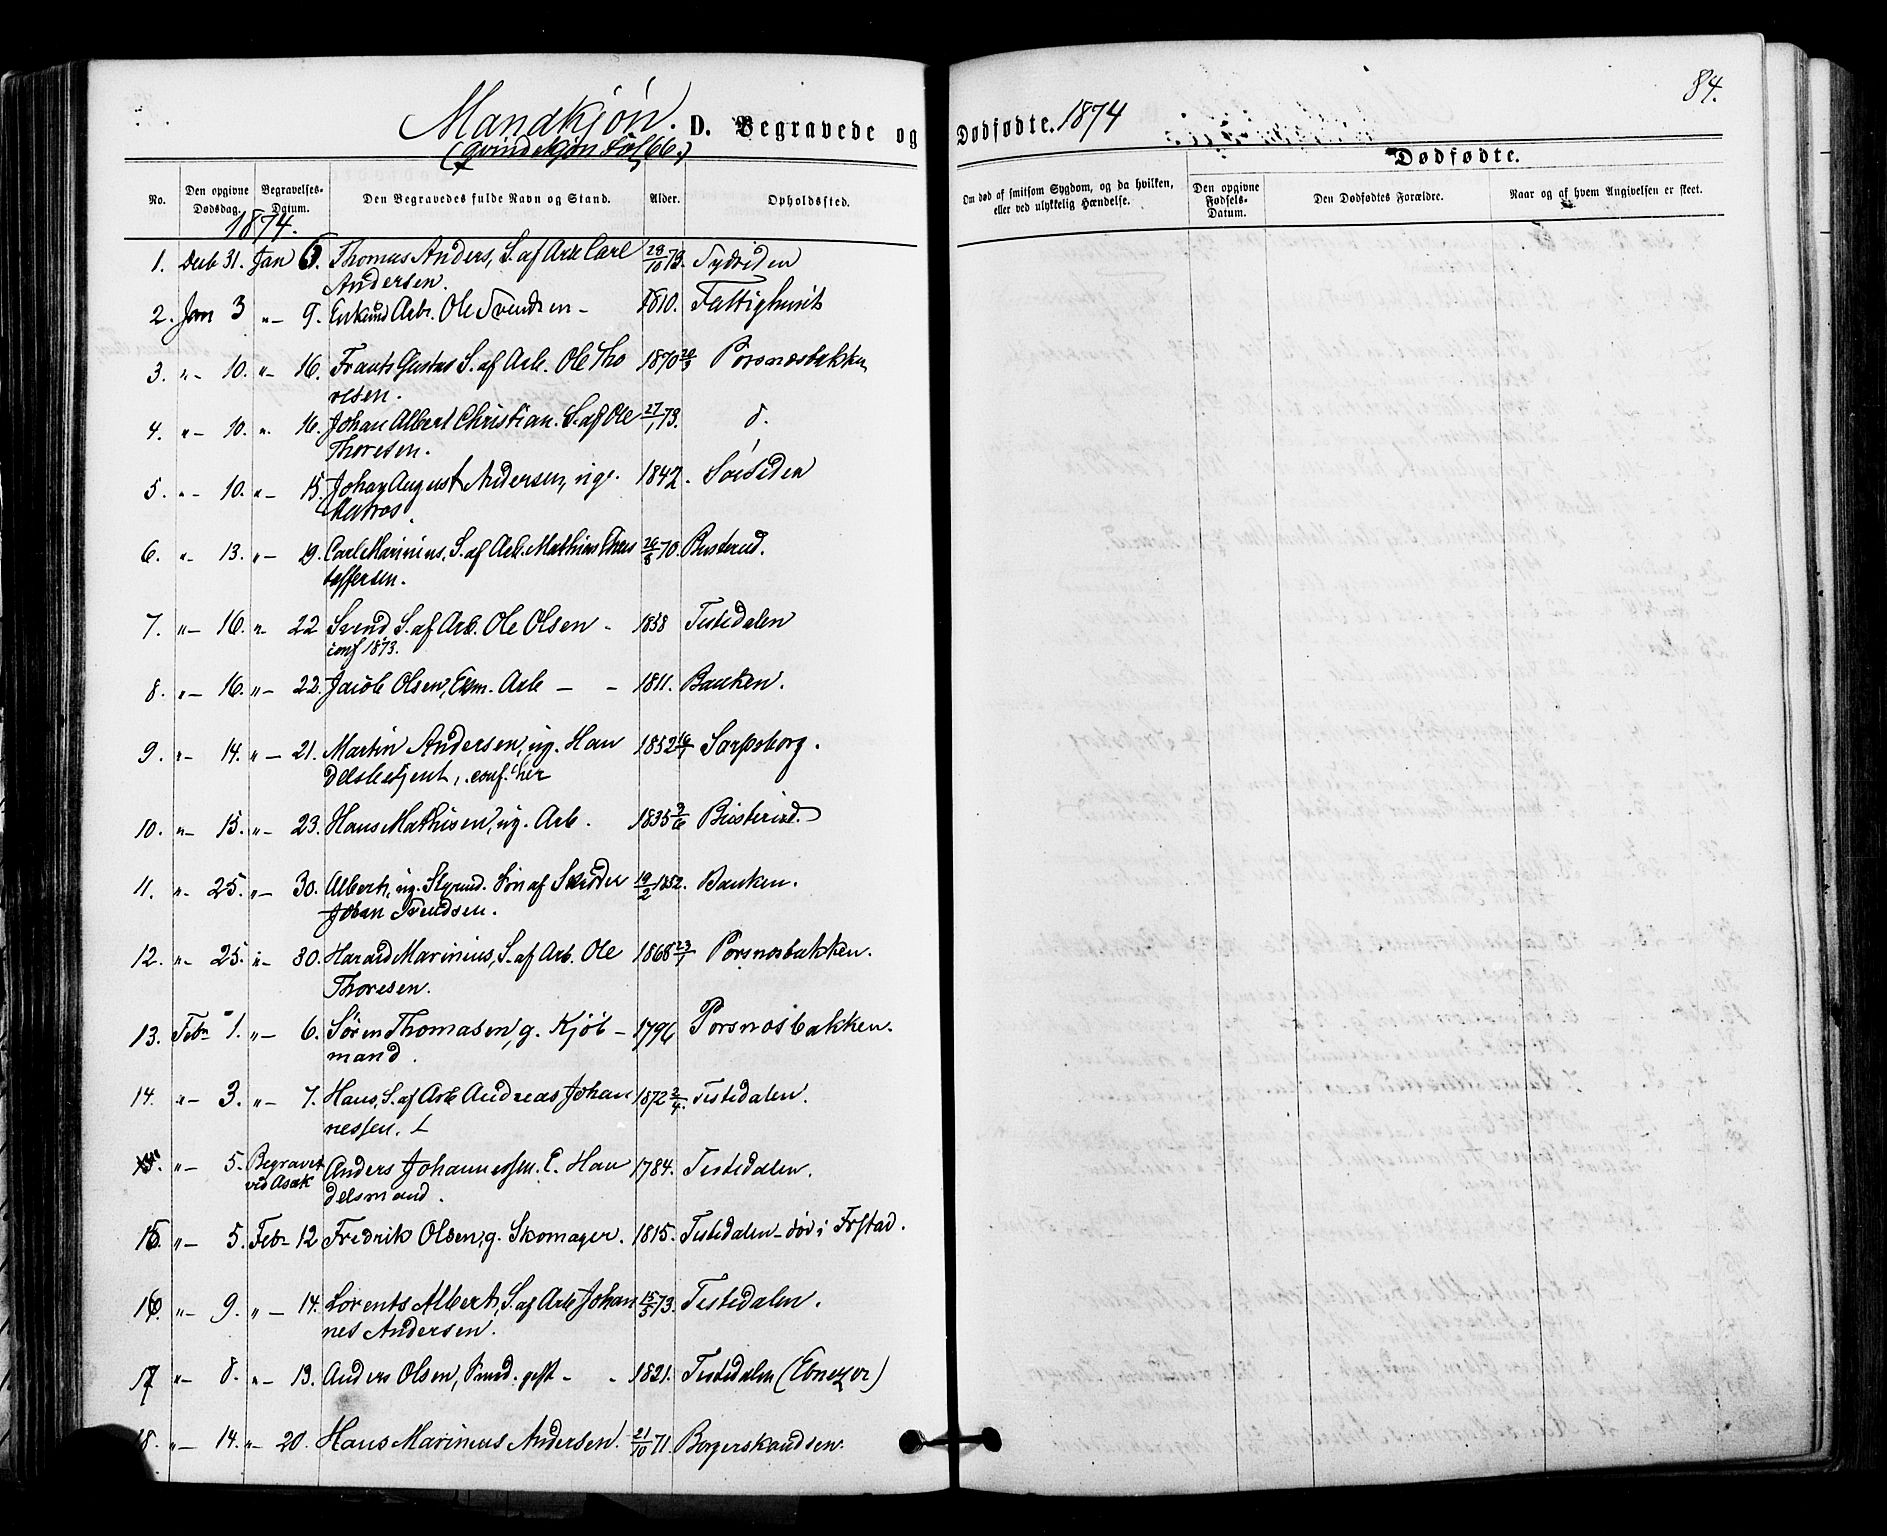 84.
Mandkjön. D. Begravede og Dødfødte. 1874
(Qvindekjön Fol. 66.)
Dødfødte.
No. Den opgivne Dødsdag. Begravelses-Datum. Den Begravedes fulde Navn og Stand. Alder. Opholdssted. Om død af smitsom Sygdom, og da hvilken, eller ved ulykkelig Hændelse. Den opgivne Fødsels-Datum. Den Dødfødtes Forældre. Naar og af hvem Angivelsen er skeet.
1874.
1. Decb 31. Jan 5. Thomas Anders, S. af Arb Carl 28/10 73. Sydsiden
Andersen.
2. Jan 3 "– 9. Enkemd Arb. Ole Svendsen – 1810. Fattighuset
3. "– 10. "– 16. Frants Gustav S. af Arb. Ole Tho 1870 20/3 Porsnæsbakken
resen.
4. "– 10. "– 16. Johan Albert Christian. S. af Ole 27/1 73. d.
Thoresen.
5. "– 10. "– 15. Johan August Andersen, ug. 1842. Sörsiden
Matros.
6. "– 13. "– 19. Carl Marinius, S. af Arb. Mathias Chris 26/8 70. Busterud.
toffersen.
7. "– 16. "– 22 Svend, S. af Arb. Ole Olsen – 1858 Tistedalen
conf 1873.
8. "– 16. "– 22. Jacob Olsen, Ekm. Arb – – 1811. Banken.
9. "– 14. "– 21. Martin Andersen, ug. Han 1852 16/7 Sarpsborg.
delsbetjent, conf. her
10. "– 15. "– 23. Hans Mathisen, ug. Arb. 1835 9/6 Busterud.
11. "– 25. "– 30. Albert, ug. Styrmd. Sön af Skrödder 19/2 1852. Banken.
Johan Svendsen.
12. "– 25. "– 30. Harald Marinius, S. af Arb. Ole 1868 23/7 Porsnosbakken.
Thoresen.
13. Febr 1. "– 6. Sören Thomasen, g. Kjöb– 1796 Porsnosbakken.
mand.
14. "– 3. "– 7. Hans, S. af Arb Andreas Johan 1872 2/4. Tistedalen.
nessen.
"– 5. Begravet Anders Johannessen. E. Han 1784. Tistedalen.
ved Asak delsmand.
15. "– 5. Febr 12 Fredrik Olsen, g. Skomager. 1815. Tistedalen – död i Frstad.
16. "– 9. "– 14. Lorents Albert, S. af Arb Johan 15/5 73. Tistedalen.
nes Andersen.
17 "– 8. "– 13. Anders Olsen, Smed. gift – – 1821. Tistedalen (Ebnezer)
18. "– 14. "– 20. Hans Marinius Andersen. 21/10 71. Borgerskandsen.